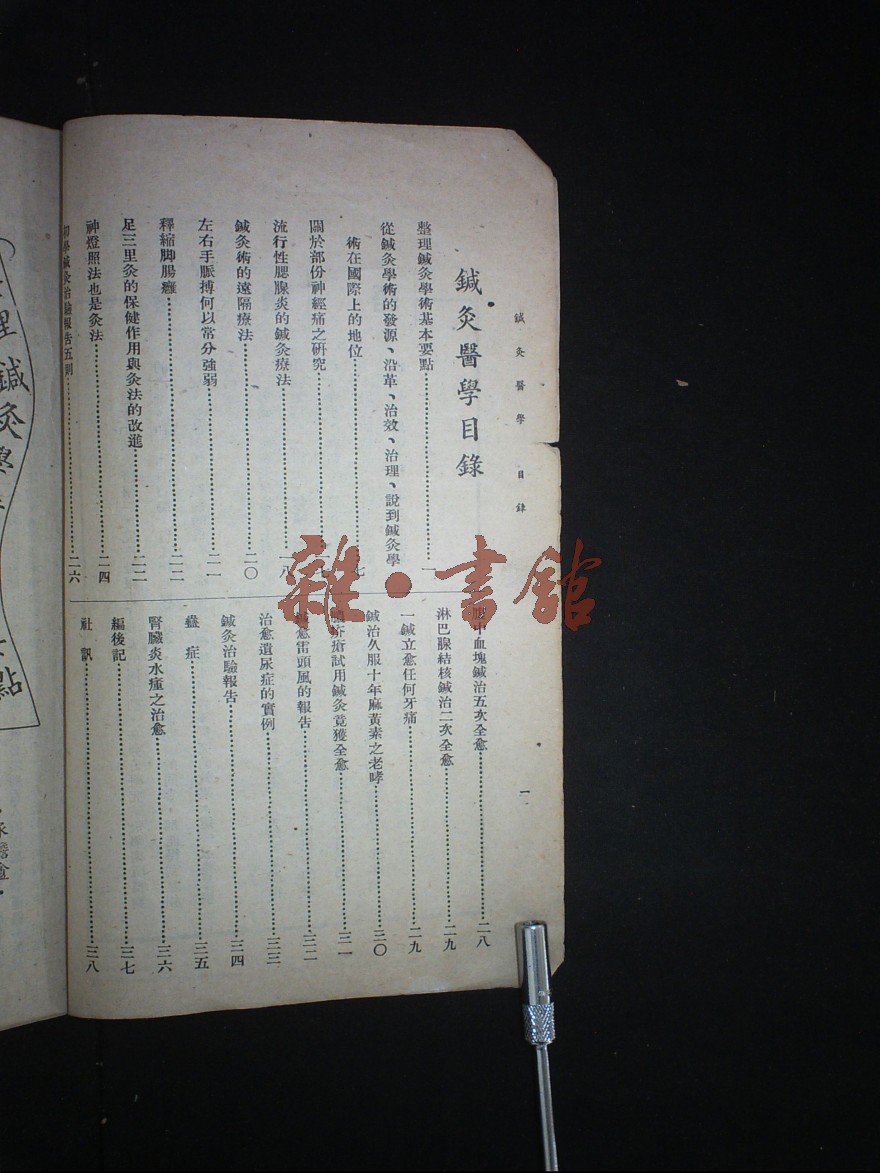 鍼灸醫學 目錄
一
鍼灸醫學目錄
整理鍼灸學術基本要點……一
從鍼灸學術的發源、沿革、治效、治理、說到鍼灸學
術在國際上的地位……七
關於部份神經痛之研究……
流行性腮腺炎的鍼灸療法……一八
鍼灸術的遠隔療法……二〇
左右手脈搏何以常分強弱……二一
釋縮脚腸癰……二二
足三里灸的保健作用與灸法的改進……二二
神燈照法也是灸法……二四
初學鍼灸治驗報告五則……二六
中血塊鍼治五次全愈……二八
淋巴腺結核鍼治二次全愈……二九
一鍼立愈任何牙痛……二九
鍼治久服十年麻黃素之老哮……三〇
疥瘡試用鍼灸竟獲全愈……三一
愈雷頭風的報告……三二
治愈遺尿症的實例……三三
鍼灸治驗報告……三四
蠱症……三五
腎臟炎水瘇之治愈……三六
編後記……三七
社訊……三八
理鍼灸學
點
雜·書館